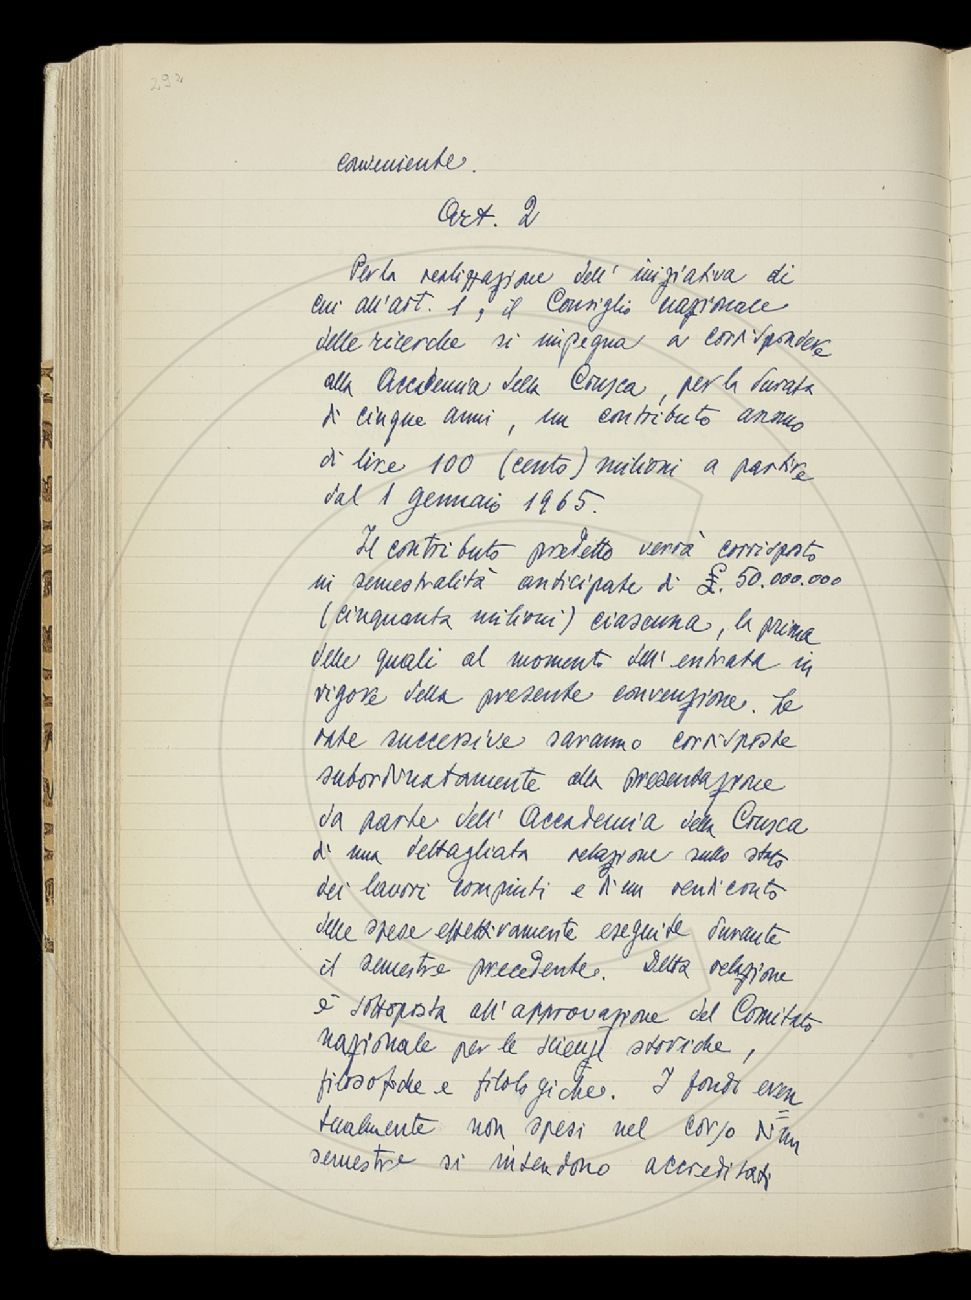 292
conveniente.
Art. 2
Per la realizzazione dell' iniziativa di
cui all'art. 1, il Consiglio nazionale
delle ricerche si impegna a corrispondere
alla Accademia della Crusca, per la durata
di cinque anni, un contributo annuo
di lire 100 (cento) milioni a partire
dal 1 gennaio 1965.
Il contributo predetto verrà corrisposto
in semestralità anticipate di £. 50.000.000
(cinquanta milioni) ciascuna, la prima
delle quali al momento dell' entrata in
vigore della presente convenzione. Le
rate successive saranno corrisposte
subordinatamente alla presentazione
da parte dell' Accademia della Crusca
di una dettagliata relazione sullo stato
dei lavori compiuti e di un rendiconto
delle spese effettivamente eseguite durante
il semestre precedente. Detta relazione
è sottoposta all' approvazione del Comitato
nazionale per le scienze storiche,
filosofiche e filologiche. I fondi even
tualmente non spesi nel corso di un
semestre si intendono accreditati